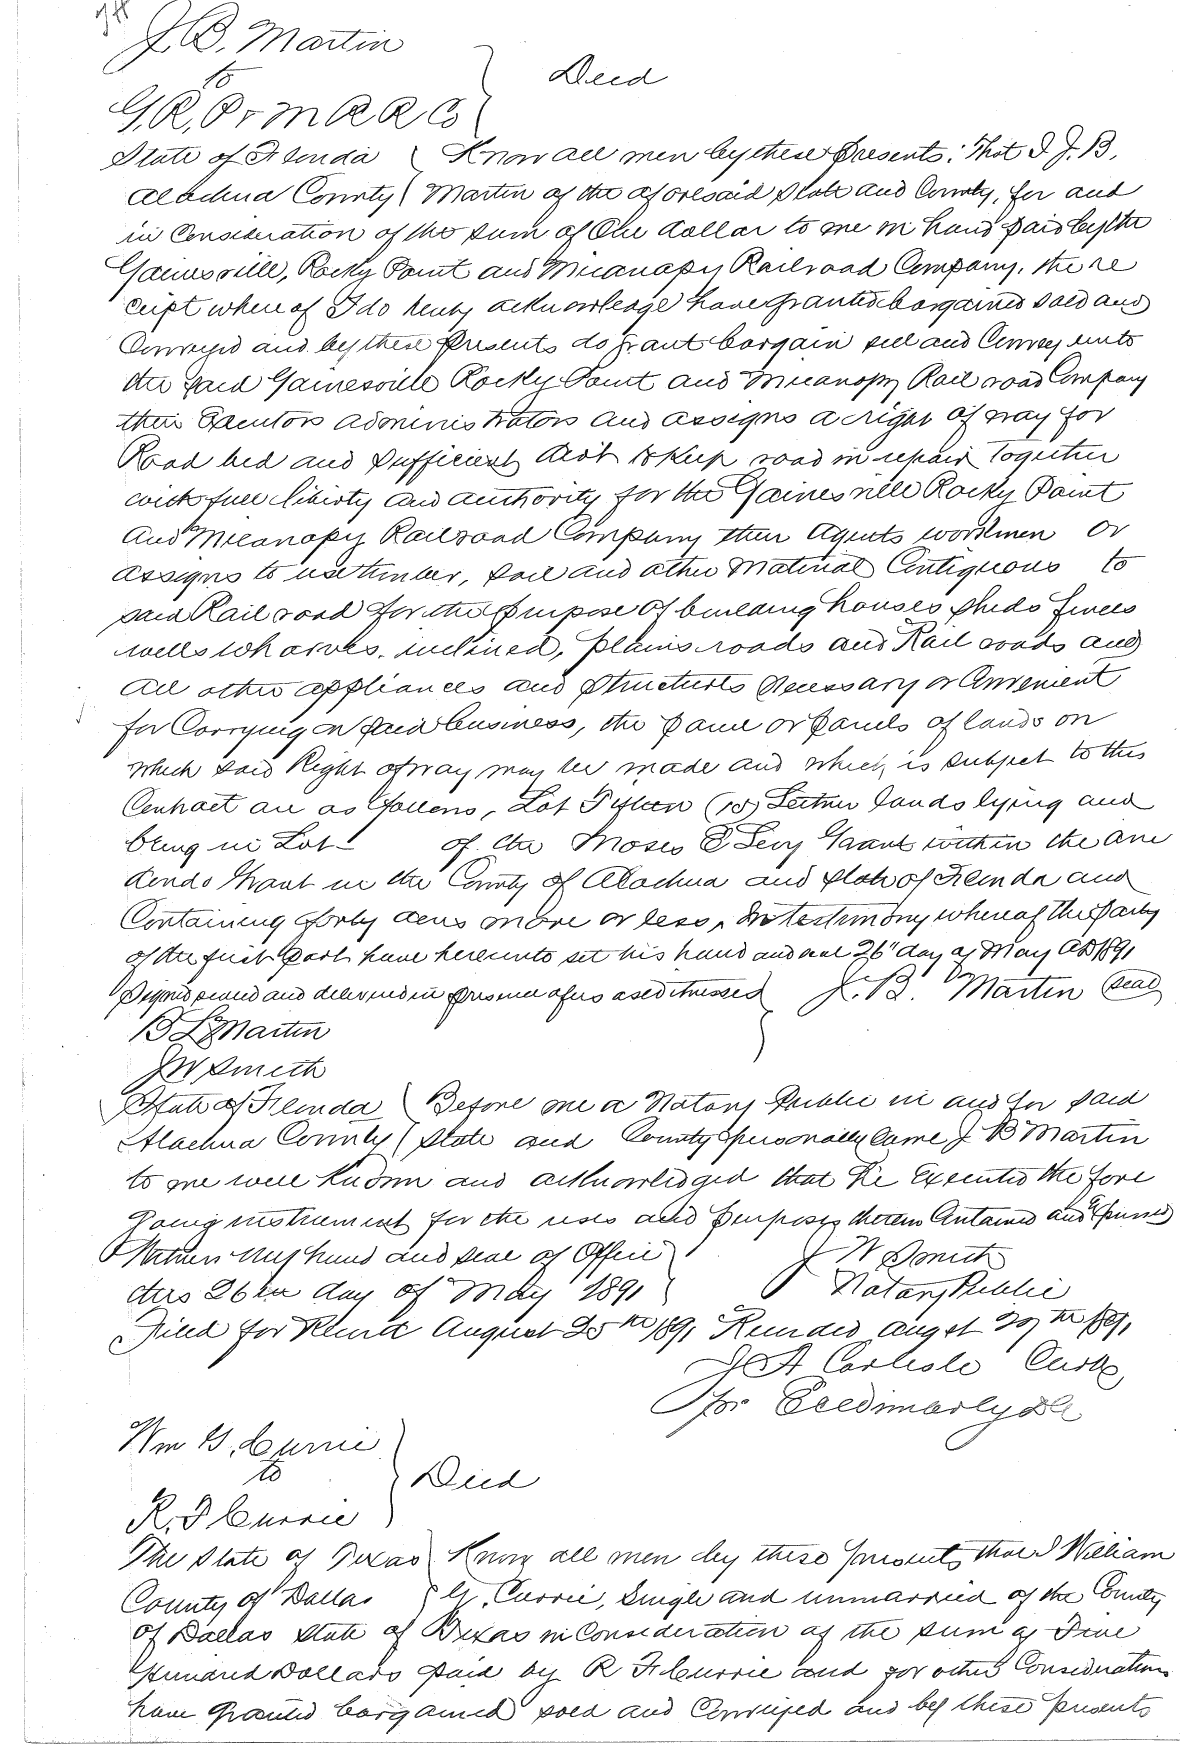 J. B. Martin
to
G. R. P & M R R Co
Deed
State of Florida Know all men by these Presents: That I J. B.
Alachua County Martin of the aforesaid State and County, for and
in Consideration of the sum of One dollar to me in hand paid by the
Gainesville, Rocky Point and Micanopy Railroad Company, the re
ceipt where of I do hereby acknowledge have granted bargained sold and
Conveyed and by these Presents do grant bargain sell and Convey unto
the said Gainesville Rocky Point and Micanopy Rail road Company
their Executors administrators and assigns a right of way for
Road bed and sufficient dirt to Keep road in repair Together
with full liberty and authority for the Gainesville Rocky Point
And Micanopy Railroad Company their Agents workmen or
assigns to use timber, soil and other Material Contiguous to
said Rail road for the purpose of building houses sheds fences
wells wharves, inclined, plains roads and Rail roads and
All other appliances and structures Necessary or Convenient
for Carrying on said business, the parcel or parcels of lands on
which said Right of way may be made and which is subject to this
Contract are as follows, Lot Fifteen (15) Leitner lands lying and
being in Lot of the Moses E Levy Grant within the Arre
dondo Grant in the County of Alachua and State of Florida and
Containing forty acres more or less, In testimony whereof the Party
of the first part have hereunto set his hand and seal 26" day of May AD 1891
Signed sealed and delivered in presence of us as witnesses J. B. Martin Seal
B L Martin
J W Smith
State of Florida Before me a Notary Public in and for said
Alachua County State and County personally Came J B Martin
to me well known and acknowledged that he Executed the fore
going instrument for the uses and purposes therein Contained and Expressed
Witness my hand and seal of Office J W Smith
this 26th day of May 1891 Notary Public
Filed for Record August 25th 1891 Recorded August 29th 1891
J A Carlisle Clerk
per
Wm G. Currie
to
R. F Currie
Deed
The State of Texas Know all men by these presents that I William
County of Dallas G. Currie, Single and unmarried of the County
of Dallas State of Texas in Consideration of the sum of Five
Hundred Dollars paid by R F Currie and for other Considerations
have granted bargained sold and Conveyed and by these presents